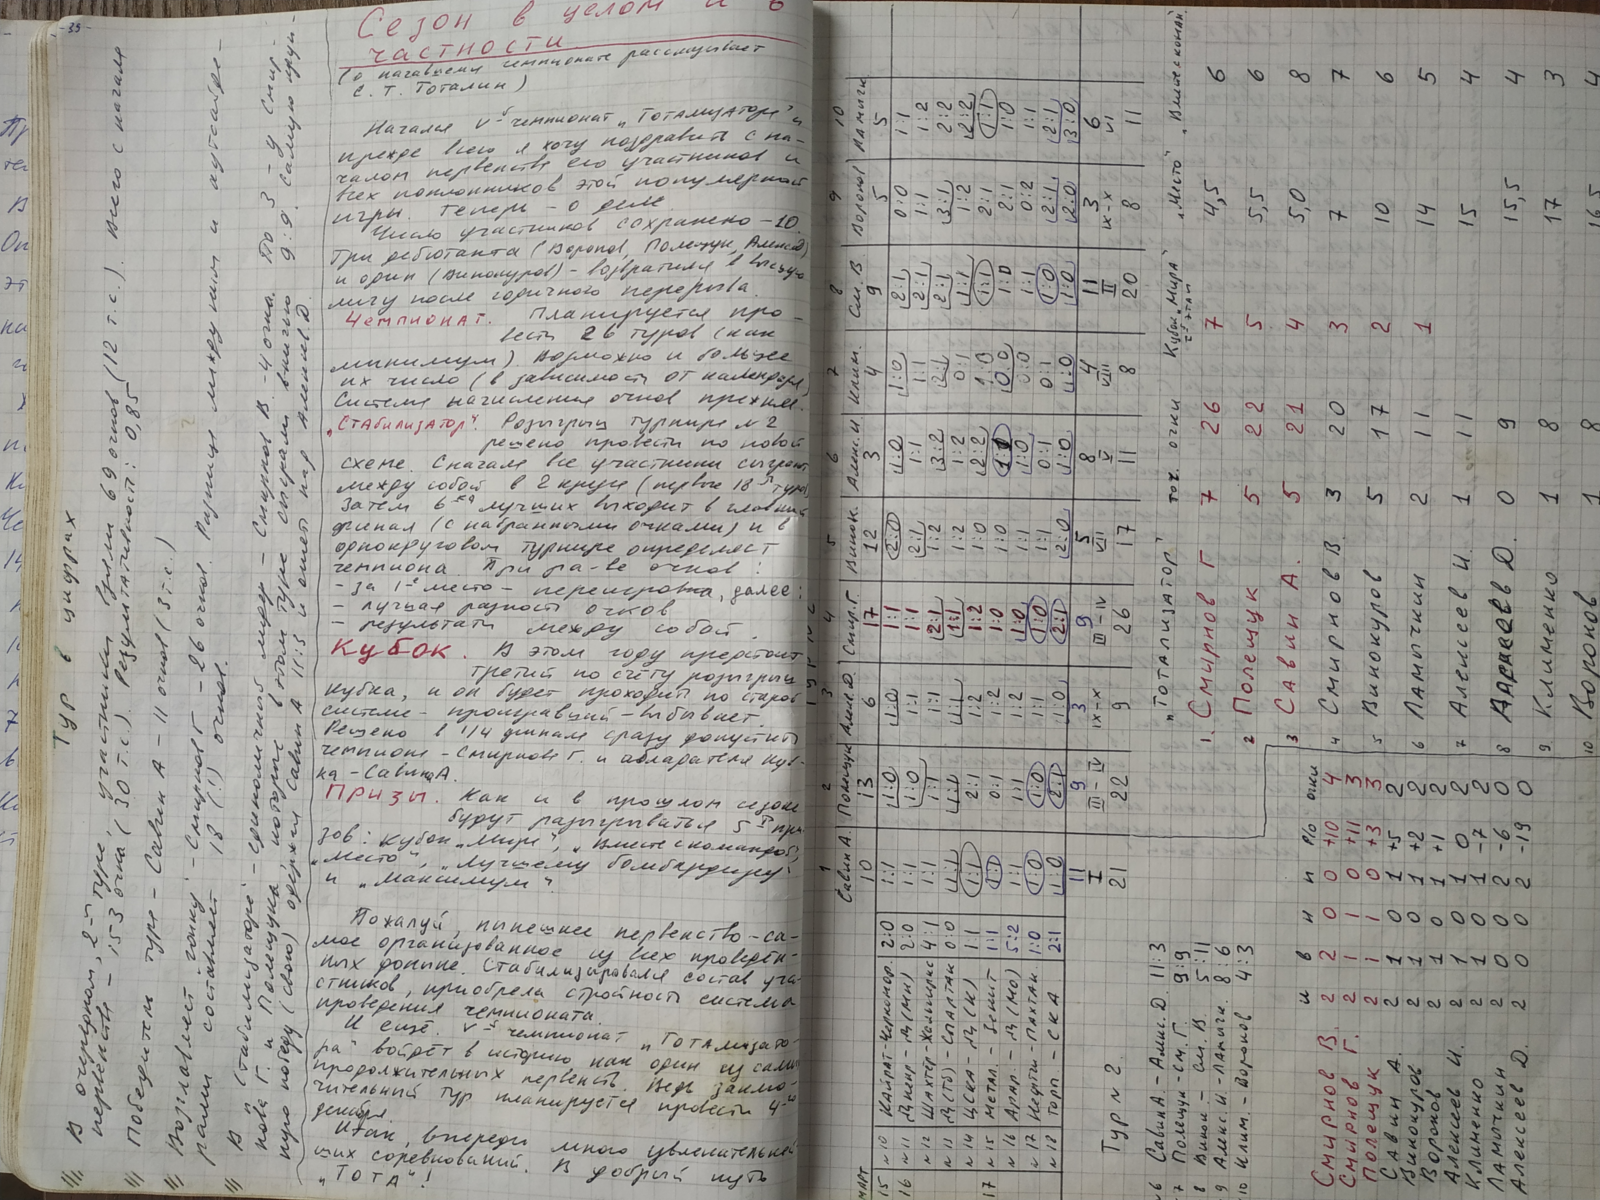 -39-
Тур в цифрах
В очередном, 2-м туре, участники взяли 69 очков (12 т.с.). Всего с начала
первенств - 153 очка (30 т.с.). Результативность: 0,85
Победитель тура - Савин А - 11 очков (3 т.с.)
Возглавляет "гонку" - Смирнов Г - 26 очков. Разница между ним и аутсайде-
рами составляет 18 (!) очков.
В "Стабилизаторе" - единоличный лидер - Смирнов В - 4 очка. По 3 - у Смир-
нова Г. и Полещука, которые в этом туре сыграли вничью 9:9. Самую круп-
ную победу (свою) одержал Савин А 11:3 и Алексеев Д.
Сезон в целом и в
частности
(о начавшемся чемпионате рассказывает
С. Т. Тоталин)
Начался V-й чемпионат "Тотализатора" и
прежде всего я хочу поздравить с на-
чалом первенств его участников и
всех поклонников этой популярной
игры. Теперь - о деле.
Число участников сохранено - 10.
Три дебютанта (Воронов, Полещук, Алексеев Д)
и один (Винокуров) - возвратился в высшую
лигу после годичного перерыва.
Чемпионат. Планируется про-
вести 26 туров (как
минимум) Возможно и больше
их число (в зависимости от календаря)
Система начисления очков прежняя.
"Стабилизатор". Розыгрыш турнира №2
решено провести по новой
схеме. Сначала все участники сыграют
между собой в 2 круга (первые 18 туров)
Затем 6 лучших выходит в главный
финал (с набранными очками) и в
однокруговом турнире определяют
чемпиона. При ра-ве очков:
- за 1-е место - переигровка, далее:
- лучшая разность очков
- результаты между собой.
Кубок. В этом году предстоит
третий по счёту розыгрыш
Кубка, и он будет проходить по старой
системе - проигравший - выбывает.
Решено в 1/4 финала сразу допустить
чемпиона - Смирнова Г. и обладателя Куб-
ка - Савина А.
Призы. Как и в прошлом сезоне
будут разыгрываться 5 при-
зов: Кубок "Мира", "Вместе с командой",
"Место", "Лучшему бомбардиру"
и "Максимум".
Пожалуй, нынешнее первенство - са-
мое организованное из всех проведён-
ных доныне. Стабилизировался состав уча-
стников, приобрела стройность система
проведения чемпионата.
И ещё. V-й чемпионат "Тотализато-
ра" войдёт в историю как один из самых
продолжительных первенств. Ведь заклю-
чительный тур планируется провести 4-го
декабря
Итак, впереди много увлекательней-
ших соревнований. В добрый путь
"Тота"!
1 2 3 4 5 6 7 8 9 10
Савин А. Полещук Алек. Д Смир. Г. Винок. Алекс. И Клим. См. В Воронов Ламычк
10 13 6 17 12 3 4 9 5 5
МАРТ
15 №10 Кайрат - Черномор. 2:0 1:1 1:0 1:0 1:1 2:0 1:0 1:0 2:1 0:0 1:1
16 №11 Днепр - Д (Мн) 2:0 1:1 1:0 1:1 1:1 2:1 1:1 1:1 2:1 1:1 1:2
№12 Шахтёр - Жальгирис 4:1 1:1 1:1 1:1 2:1 1:2 3:2 2:1 2:1 3:1 2:2
№13 Д (Тб) - Спартак 0:0 1:1 1:1 1:1 1:1 1:2 1:2 0:1 1:1 1:2 2:2
№14 ЦСКА - Д (К) 1:1 1:1 2:1 1:2 1:2 1:0 2:2 1:0 1:1 2:1 1:1
17 №15 Метал. - Зенит 1:1 1:1 0:1 1:2 1:0 1:0 1:1 0:0 1:0 2:1 1:0
№16 Арар - Д (Мо) 5:2 1:1 1:1 1:2 1:0 1:1 1:0 0:0 1:1 0:2 1:1
№17 Нефтчи - Пахтак. 1:0 1:0 1:0 1:1 1:0 1:1 0:1 0:1 1:0 2:1 2:1
№18 Торп. - СКА 2:1 1:0 2:1 1:0 2:1 2:0 1:0 1:0 1:0 2:0 3:0
Тур №2.
11 9 3 9 5 8 4 11 3 6
I III-IV IX-X III-IV VII V VIII II IX-X VI
21 22 9 26 17 11 8 20 8 11
№6 Савин А. - Алек. Д. 11:3
7 Полещук - См. Г. 9:9
8 Винок - См. В. 5:11
9 Алекс. И - Ламычк. 8:6
10 Клим. - Воронов 4:3
и в н п р/о очки
Смирнов В. 2 2 0 0 +10 4
Смирнов Г. 2 1 1 0 +11 3
Полещук 2 1 1 0 +3 3
Савин А. 2 1 0 1 +5 2
Винокуров 2 1 0 1 +2 2
Воронов 2 1 0 1 +1 2
Алексеев И. 2 1 0 1 0 2
Клименко 2 1 0 1 -7 2
Ламычкин 2 0 0 2 -6 0
Алексеев Д. 2 0 0 2 -19 0
"Тотализатор" точ. очки Кубок "Мира" 2-й этап "Место" "Вместе с командой"
1. Смирнов Г 7 26 7 4,5 6
2 Полещук 5 22 5 5,5 6
3 Савин А. 5 21 4 5,0 8
4 Смирнов В. 3 20 3 7 7
5 Винокуров 5 17 2 10 6
6 Ламычкин 2 11 1 14 5
7 Алексеев И. 1 11 15 4
8 Алексеев Д. 0 9 15,5 4
9 Клименко 1 8 17 3
10 Воронов 1 8 16,5 4